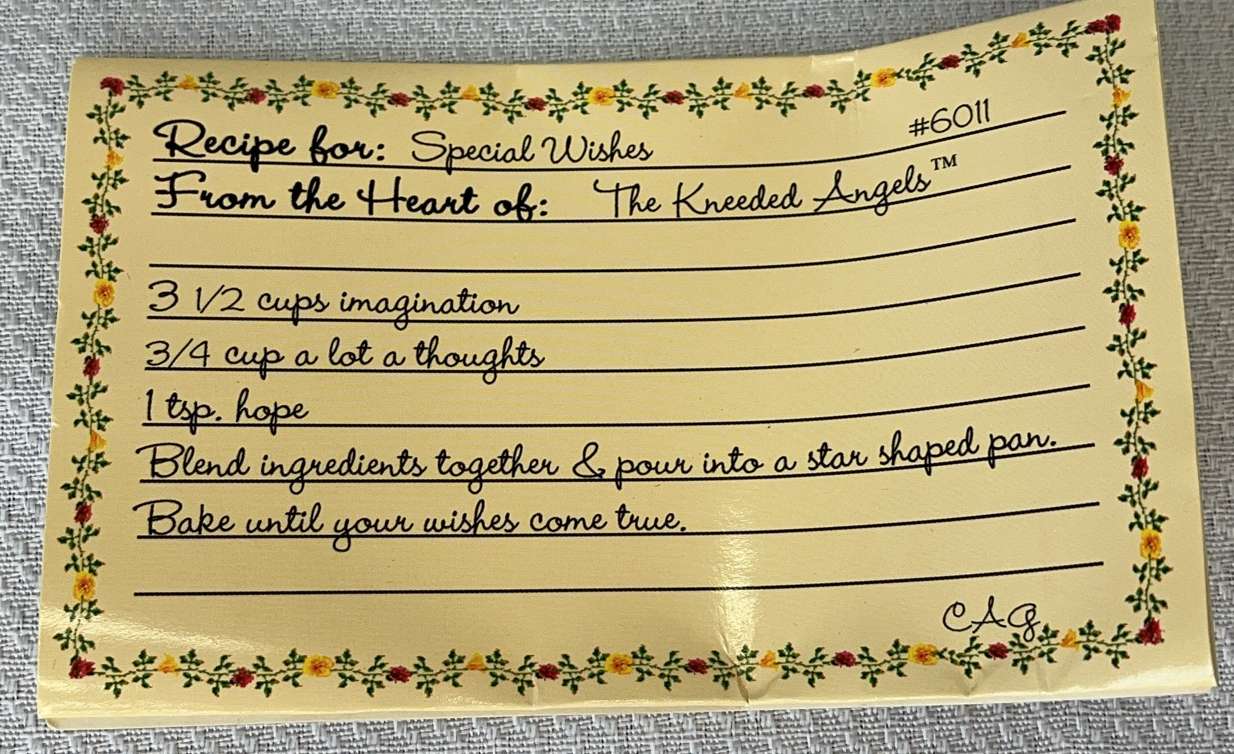 Recipe for: Special Wishes #6011
From the Heart of: The Kneeded Angels™
3 1/2 cups imagination
3/4 cup a lot a thoughts
1 tsp. hope
Blend ingredients together & pour into a star shaped pan.
Bake until your wishes come true.
CAG